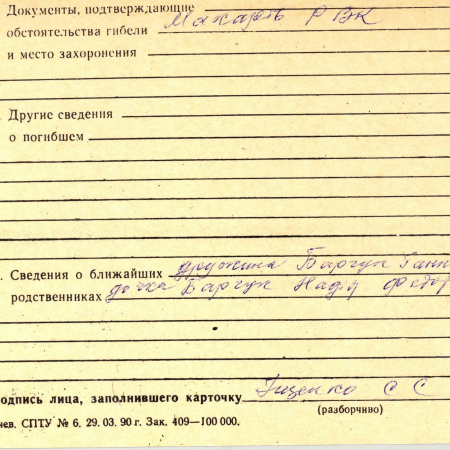 Документы, подтверждающие
обстоятельства гибели РВК
и место захоронения
Другие сведения
о погибшем
. Сведения о ближайших дружина Барчук Ганн
родственниках дочка Барчук Надя Федор
одпись лица, заполнившего карточку Гищенко С С
(разборчиво)
нев. СПТУ № 6. 29. 03. 90 г. Зак. 409—100 000.